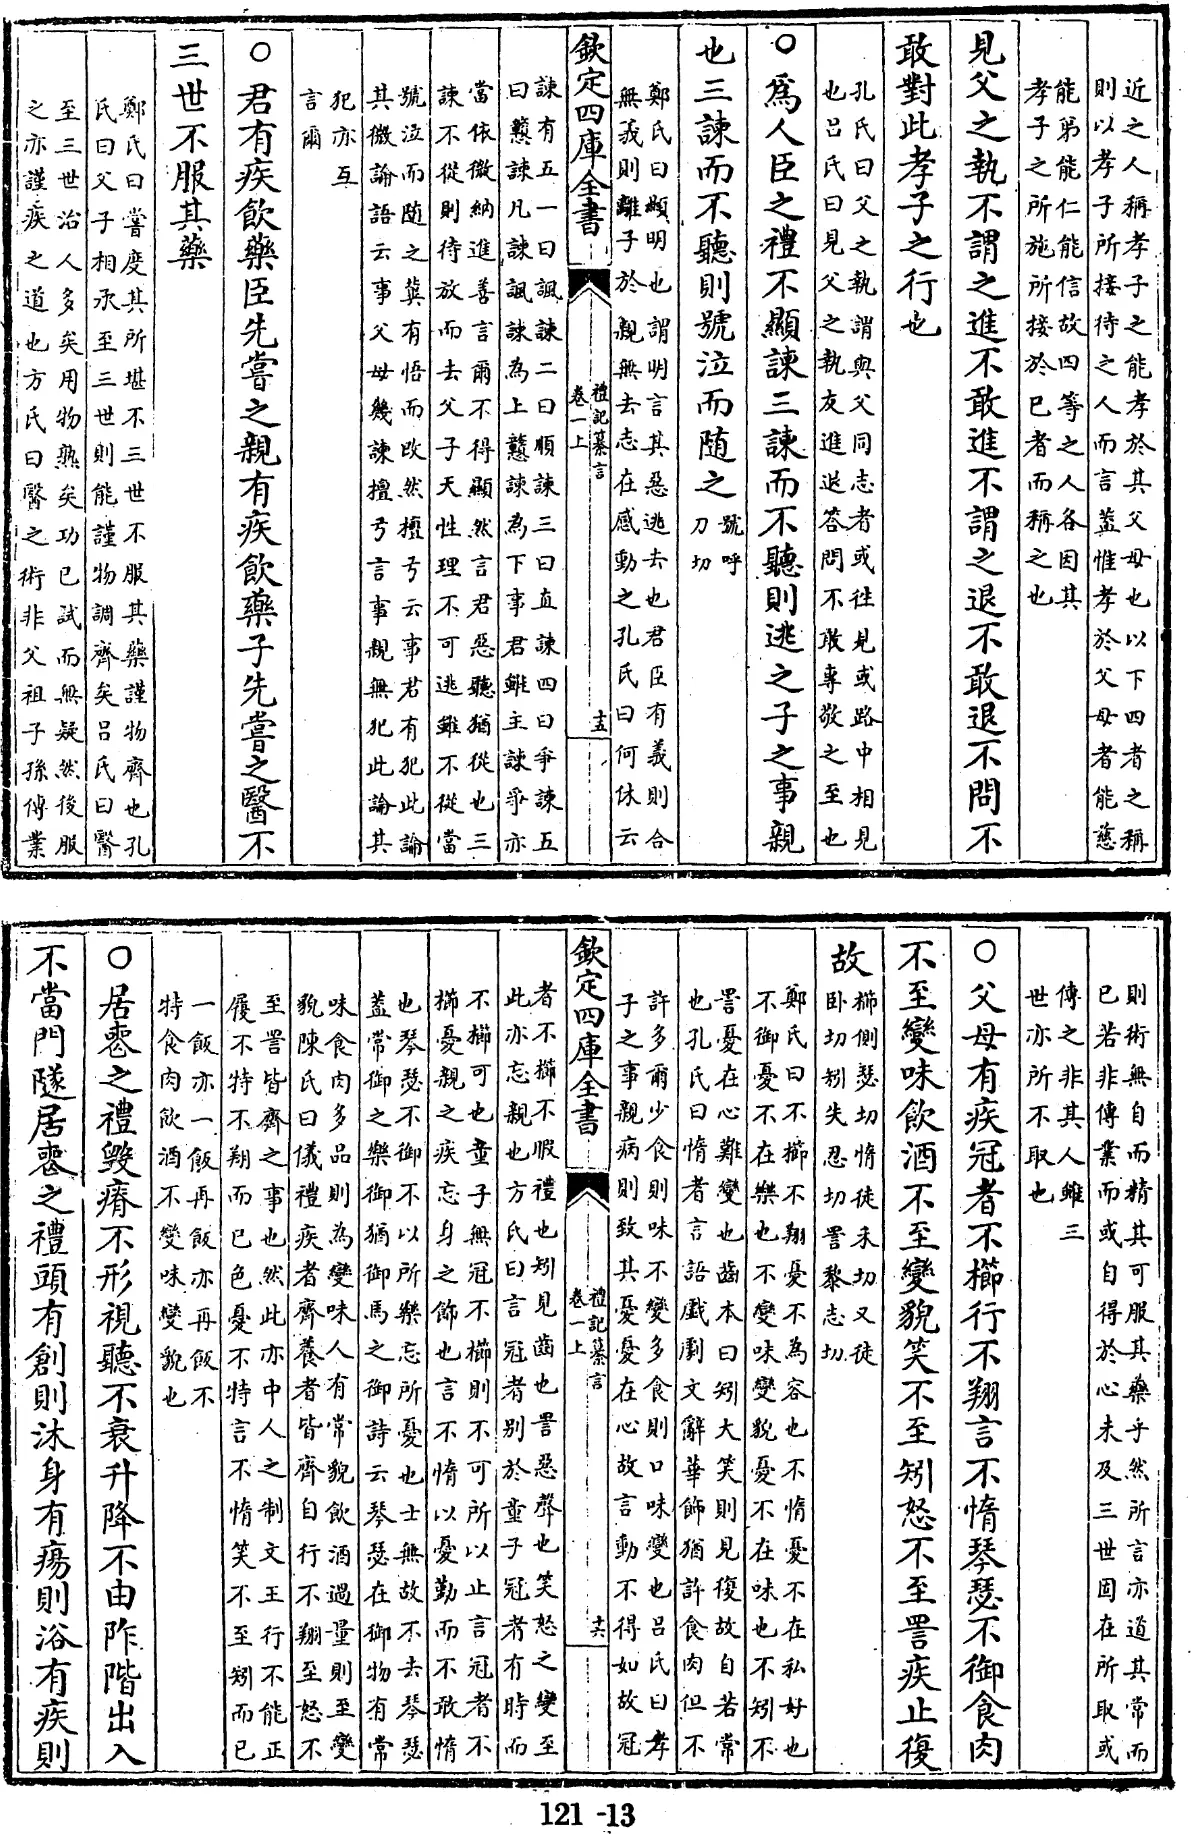 近之人稱孝子之能孝於其父母也以下四者之稱
則以孝子所接待之人而言蓋惟孝於父母者能慈
能弟能仁能信故四等之人各因其
孝子之所施所接於已者而稱之也
見父之執不謂之進不敢進不謂之退不敢退不問不
敢對此孝子之行也
孔氏曰父之執謂與父同志者或往見或路中相見
也吕氏曰見父之執友進退答問不敢專敬之至也
○為人臣之禮不顯諫三諫而不聽則逃之子之事親
也三諫而不聽則號泣而随之號呼刀切
鄭氏曰顯明也謂明言其惡逃去也君臣有義則合
無義則離子於親無去志在感動之孔氏曰何休云
欽定四庫全書
禮記纂言
卷一上
十五
諫有五一曰諷諫二曰順諫三曰直諫四曰爭諫五
曰戇諫凡諫諷諫為上戇諫為下事君雖主諫爭亦
當依微納進善言爾不得顯然言君惡聽猶從也三
諫不從則待放而去父子天性理不可逃雖不從當
號泣而随之冀有悟而改然檀弓云事君有犯此論
其微論語云事父母幾諫檀弓言事親無犯此論其
犯亦互
言爾
○君有疾飲藥臣先嘗之親有疾飲藥子先嘗之醫不
三世不服其藥
鄭氏曰嘗度其所堪不三世不服其藥謹物齊也孔
氏曰父子相承至三世則能謹物調齊矣吕氏曰醫
至三世治人多矣用物熟矣功已試而無疑然後服
之亦謹疾之道也方氏曰醫之術非父祖子孫傳業
則術無自而精其可服其藥乎然所言亦道其常而
已若非傳業而或自得於心未及三世固在所取或
傳之非其人雖三
世亦所不取也
○父母有疾冠者不櫛行不翔言不惰琴瑟不御食肉
不至變味飲酒不至變貌笑不至矧怒不至詈疾止復
故櫛側瑟切惰徒禾切又徒卧切矧失忍切詈黎志切
鄭氏曰不櫛不翔憂不為容也不惰憂不在私好也
不御憂不在樂也不變味變貌憂不在味也不矧不
詈憂在心難變也齒本曰矧大笑則見復故自若常
也孔氏曰惰者言語戲劇文辭華飾猶許食肉但不
許多爾少食則味不變多食則口味變也吕氏曰孝
子之事親病則致其憂憂在心故言動不得如故冠
欽定四庫全書
禮記纂言
卷一上
十六
者不櫛不暇禮也矧見齒也詈惡聲也笑怒之變至
此亦忘親也方氏曰言冠者别於童子冠者有時而
不櫛可也童子無冠不櫛則不可所以止言冠者不
櫛憂親之疾忘身之飾也言不惰以憂勤而不敢惰
也琴瑟不御不以所樂忘所憂也士無故不去琴瑟
蓋常御之樂御猶御馬之御詩云琴瑟在御物有常
味食肉多品則為變味人有常貌飲酒過量則至變
貌陳氏曰儀禮疾者齊養者皆齊自行不翔至怒不
至詈皆齊之事也然此亦中人之制文王行不能正
履不特不翔而已色憂不特言不惰笑不至矧而已
一飯亦一飯再飯亦再飯不
特食肉飲酒不變味變貌也
○居喪之禮毁瘠不形視聽不衰升降不由阼階出入
不當門隧居喪之禮頭有創則沐身有瘍則浴有疾則
121-13